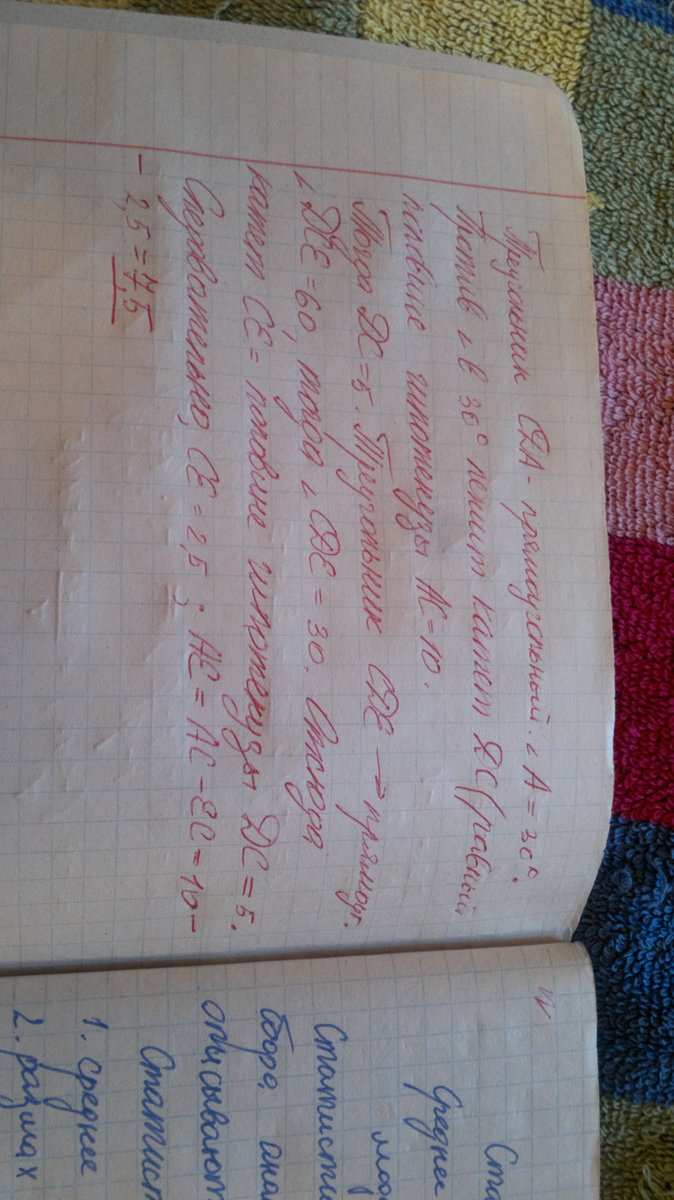 Треугольник CDA - прямоугольный. ∟A = 30°.
Против ∟ в 30° лежит катет DC (равный
половине гипотенузы AC = 10.
Тогда DC = 5. Треугольник CDE → прямоуг.
∟ DCE = 60, тогда ∟ CDE = 30. Отсюда
катет CE = половине гипотенузы DC = 5.
Следовательно, CE = 2,5; AE = AC - EC = 10 -
- 2,5 = 7,5
Ста
Среднее
мод
Статисти
бора, ана
описывают
Статист
1. среднее
2. размах